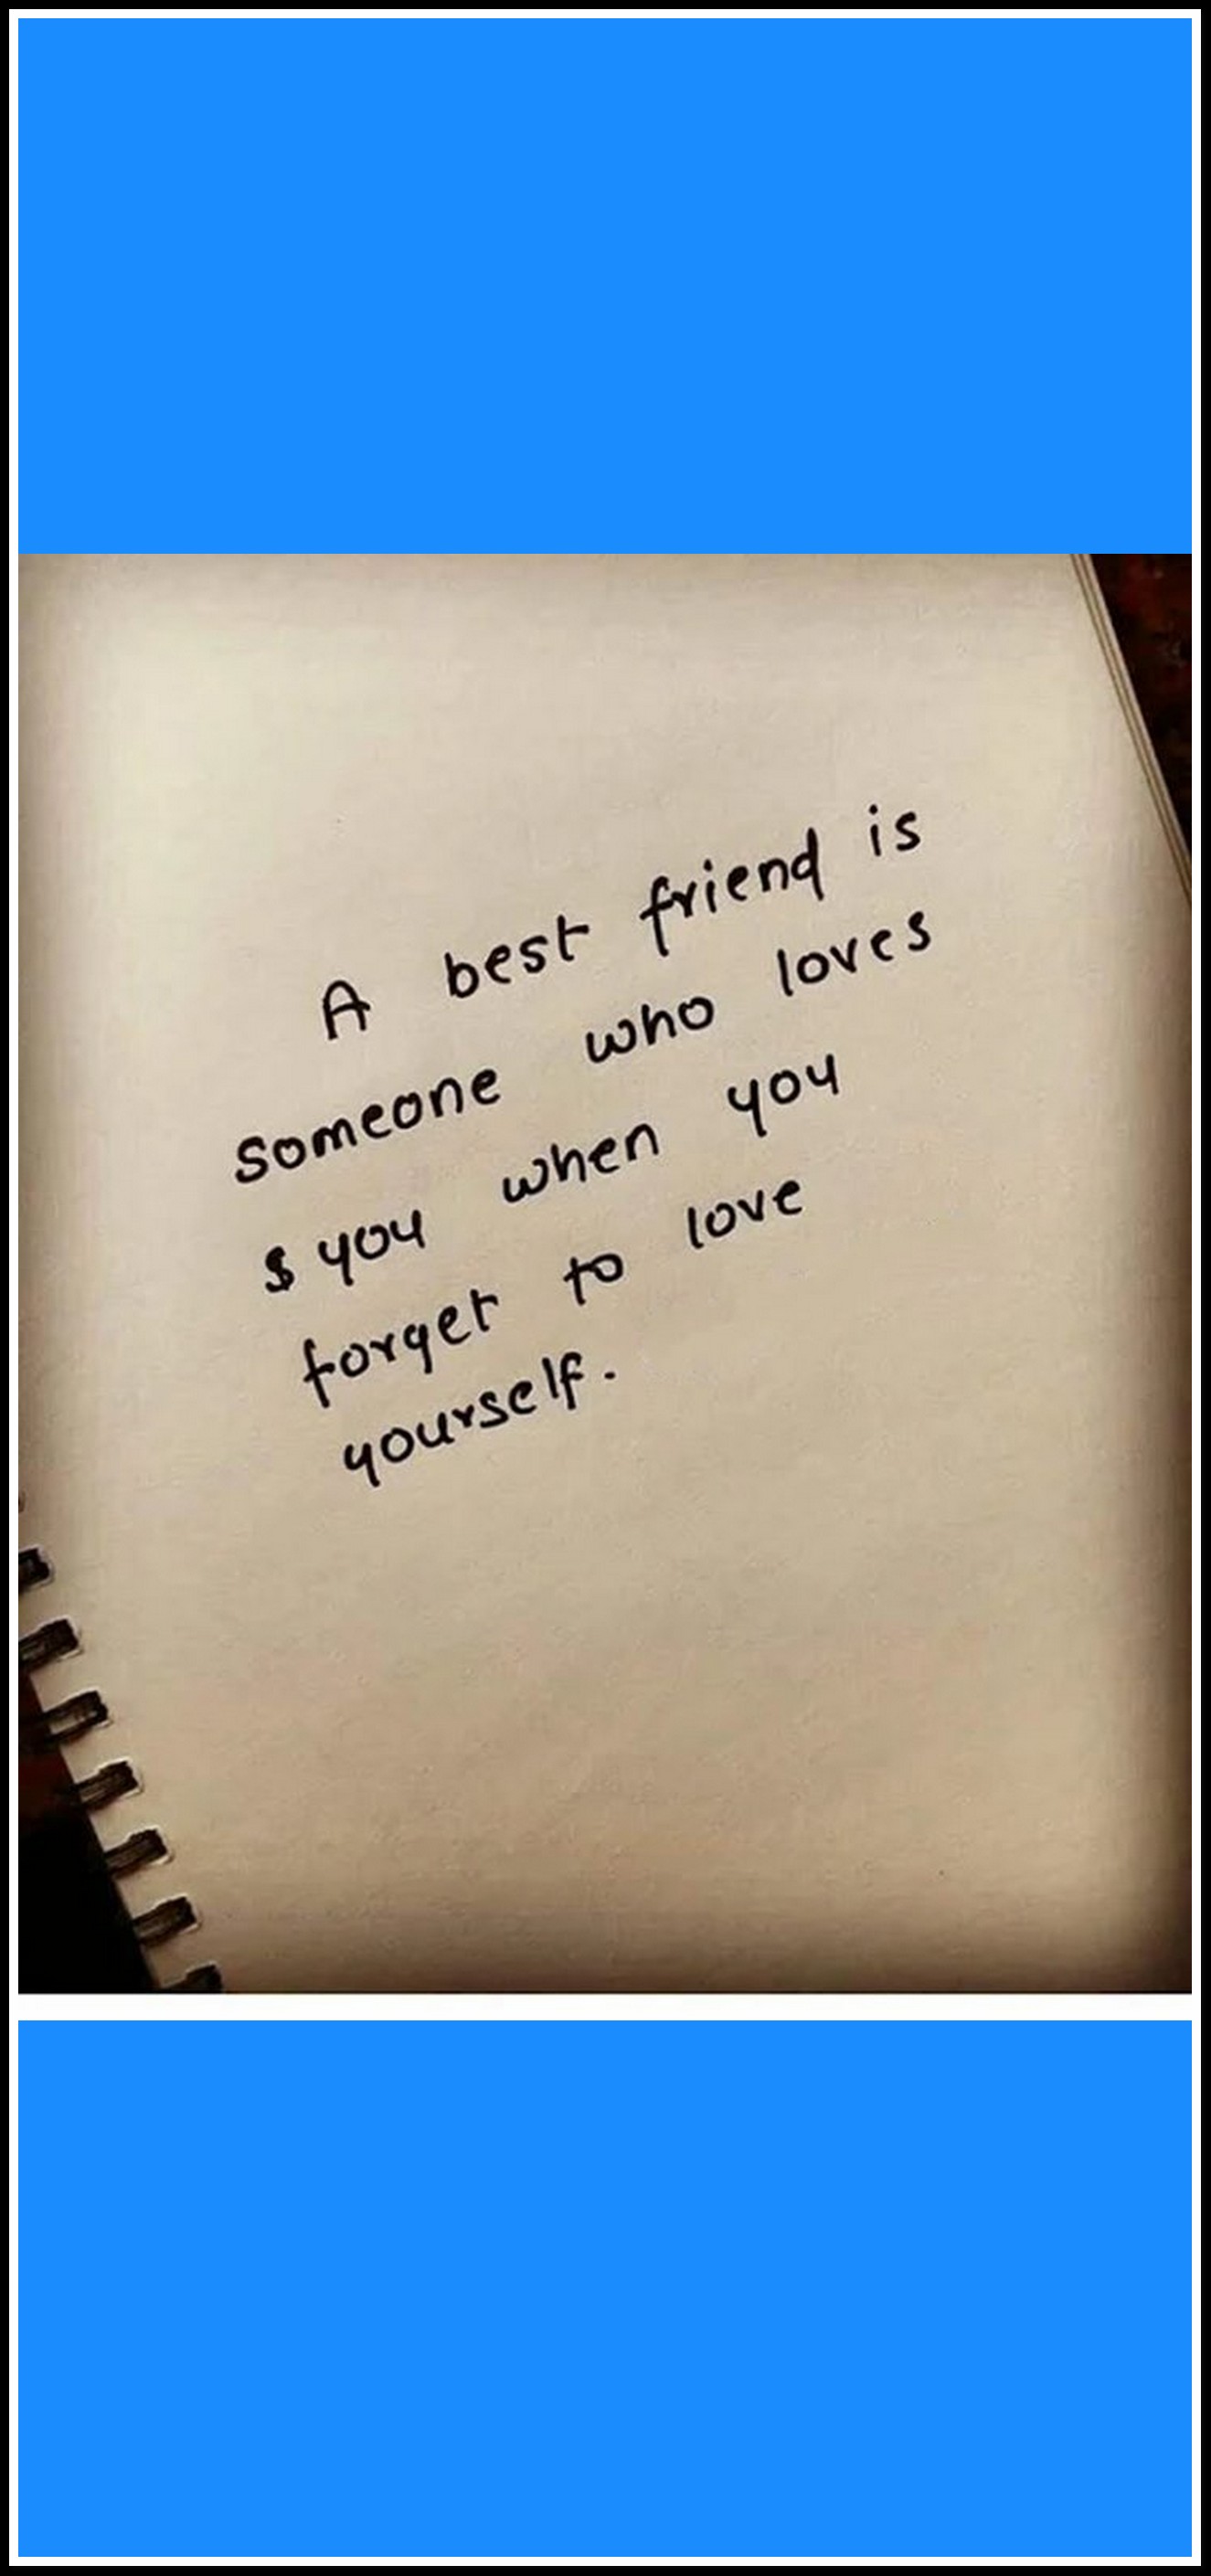 A best friend is
someone who loves
$ you when you
forget to love
yourself.